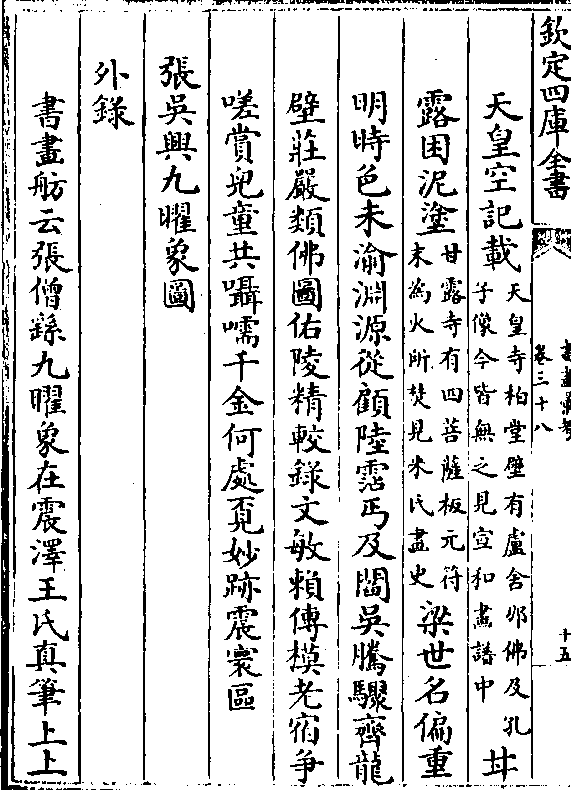 欽定四庫全書
書畫彙考
卷三十八
十五
天皇空記載天皇寺柏堂壁有盧舍那佛及孔子像今皆無之見宣和畫譜中甘
露困泥塗甘露寺有四菩薩板元符末為火所焚見米氏畫史梁世名偏重
明時色未渝淵源從顧陸霑丐及閻吳騰驟齊龍
壁莊嚴類佛圖佑陵精較錄文敏賴傳模老宿爭
嗟賞兒童共囁嚅千金何處覓妙跡震寰區
張吳興九曜象圖
外錄
書畫舫云張僧繇九曜象在震澤王氏真筆上上